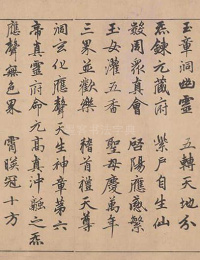 玉章洞幽靈 五轉天地分
炁鍊元藏府 紫戶自生仙
數周眾真會 啓陽應感繁
玉女灌五香 聖母慶萬年
三界並歡樂 稽首禮天尊
洞玄化應聲天生神章第六
帝真靈府命元高真沖融之炁
應聲無色界 霄映冠十方